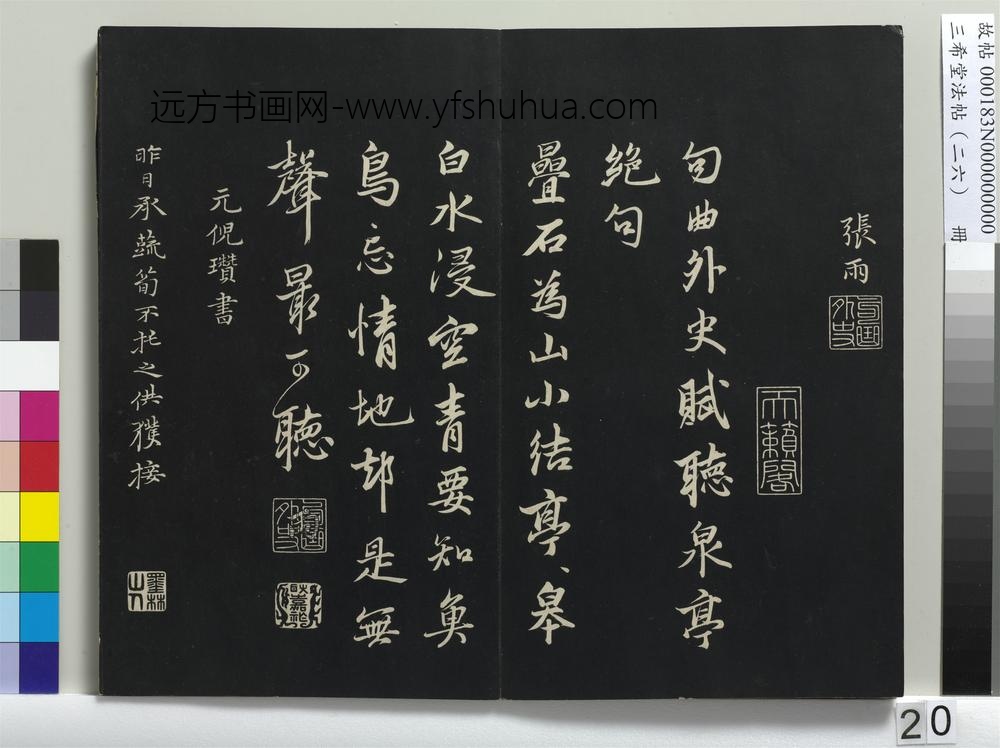 故帖 000183N000000000
三希堂法帖（二六） 冊
远方书画网-www.yfshuhua.com
張雨
句曲外史
天籟閣
句曲外史賦聽泉亭
絕句
疊石為山小結亭亭皋
白水浸空青要知魚
鳥忘情地却是無
聲最可聽
句曲外史
元倪瓚書
昨日承蔬筍不托之供獲接
墨林山人
20